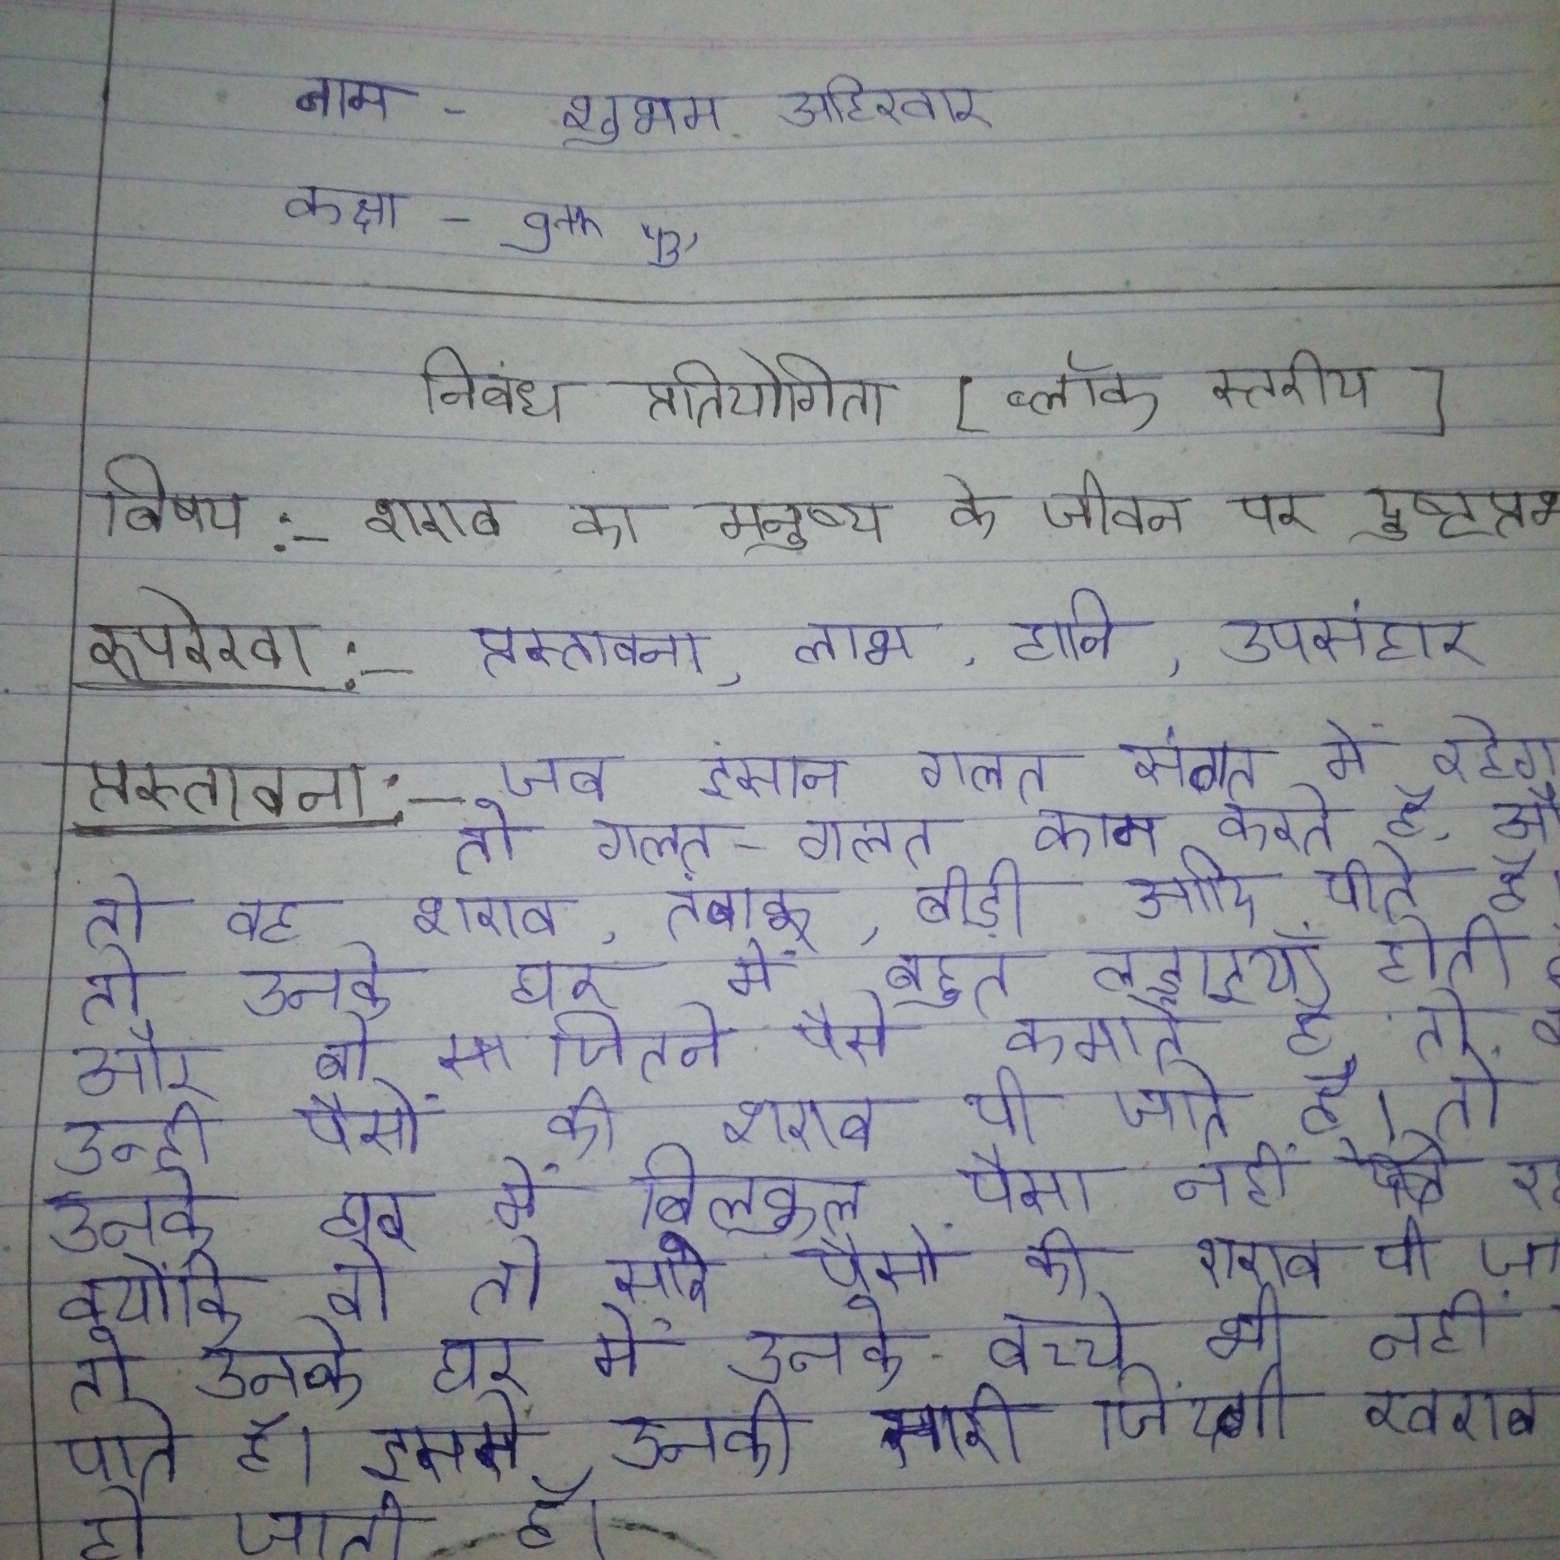 नाम - शुभम अहिरवार
कक्षा - 9th "B"
निबंध प्रतियोगिता [ ब्लॉक स्तरीय ]
विषय :- शराब का मनुष्य के जीवन पर
रूपरेखा :- प्रस्तावना, लाभ, हानि, उपसंहार
प्रस्तावना :- जब इंसान गलत संगत में
तो गलत - गलत काम करते है,
तो वह शराब, तंबाकू, बीड़ी आदि पीते है।
तो उनके घर में बहुत लड़ाइयाँ होती
और वो जितने पैसे कमाते है, तो
उन्ही पैसों की शराब पी जाते है। तो
उनके घर में बिलकुल पैसा नहीं
क्योंकि वो तो सारे पैसों की शराब पी
तो उनके घर में उनके बच्चे भी नहीं
पाते हैं। इससे उनकी सारी जिंदगी खराब
हो जाती हैं।